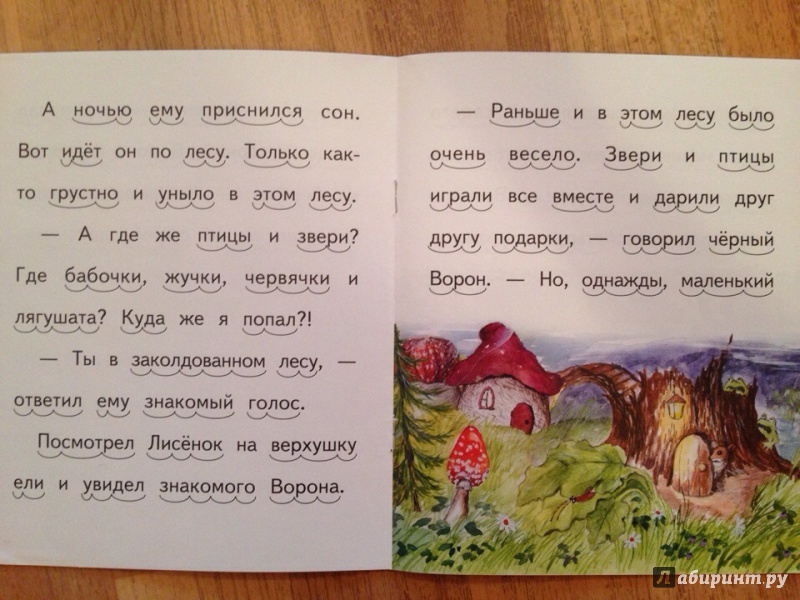 А ночью ему приснился сон.
Вот идёт он по лесу. Только как-
то грустно и уныло в этом лесу.
— А где же птицы и звери?
Где бабочки, жучки, червячки и
лягушата? Куда же я попал?!
— Ты в заколдованном лесу, —
ответил ему знакомый голос.
Посмотрел Лисёнок на верхушку
ели и увидел знакомого Ворона.
— Раньше и в этом лесу было
очень весело. Звери и птицы
играли все вместе и дарили друг
другу подарки, — говорил чёрный
Ворон. — Но, однажды, маленький
Лабиринт.ру